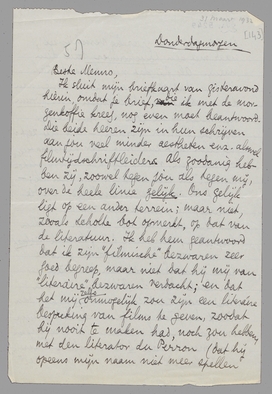 31 maart 1932
[143]
5)
Donderdagmorgen
Beste Menno,
Ik sluit mijn briefkaart van gisteravond
hierin, omdat je brief, die ik met de mor-
genkoffie kreeg, nog even moet beantwoord.
die beide heeren zijn in hun schrijven
aan jou veel minder aestheten enz. dan
filmtijdschriftleiders. Als zoodanig heb-
ben zij, zoowel tegen jou als tegen mij,
over de heele linie gelijk. Ons gelijk
ligt op een ander terrein; maar niet,
zooals Scholte dat opmerkt, op dat van
de literatuur. Ik heb hem geantwoord
dat ik zijn "filmische" bezwaren zeer
goed begreep, maar niet dat hij mij van
"literaire" bezwaren verdacht; en dat
het mij zelfs onmogelijk zou zijn een literaire
bespreking van films te geven, zoodat
hij nooit te maken had, noch zou hebben,
met den literator du Perron. (Dat hij
opeens mijn naam niet meer spellen